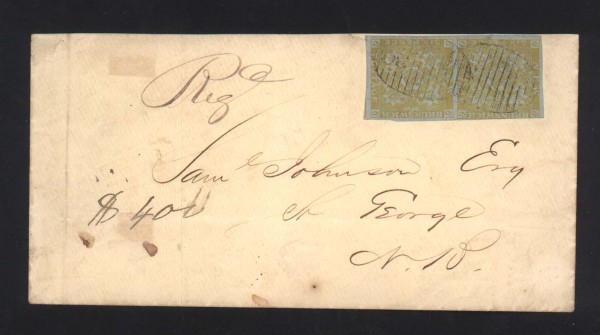 Regd
Saml Johnson Esq
$400
St George
N.B.